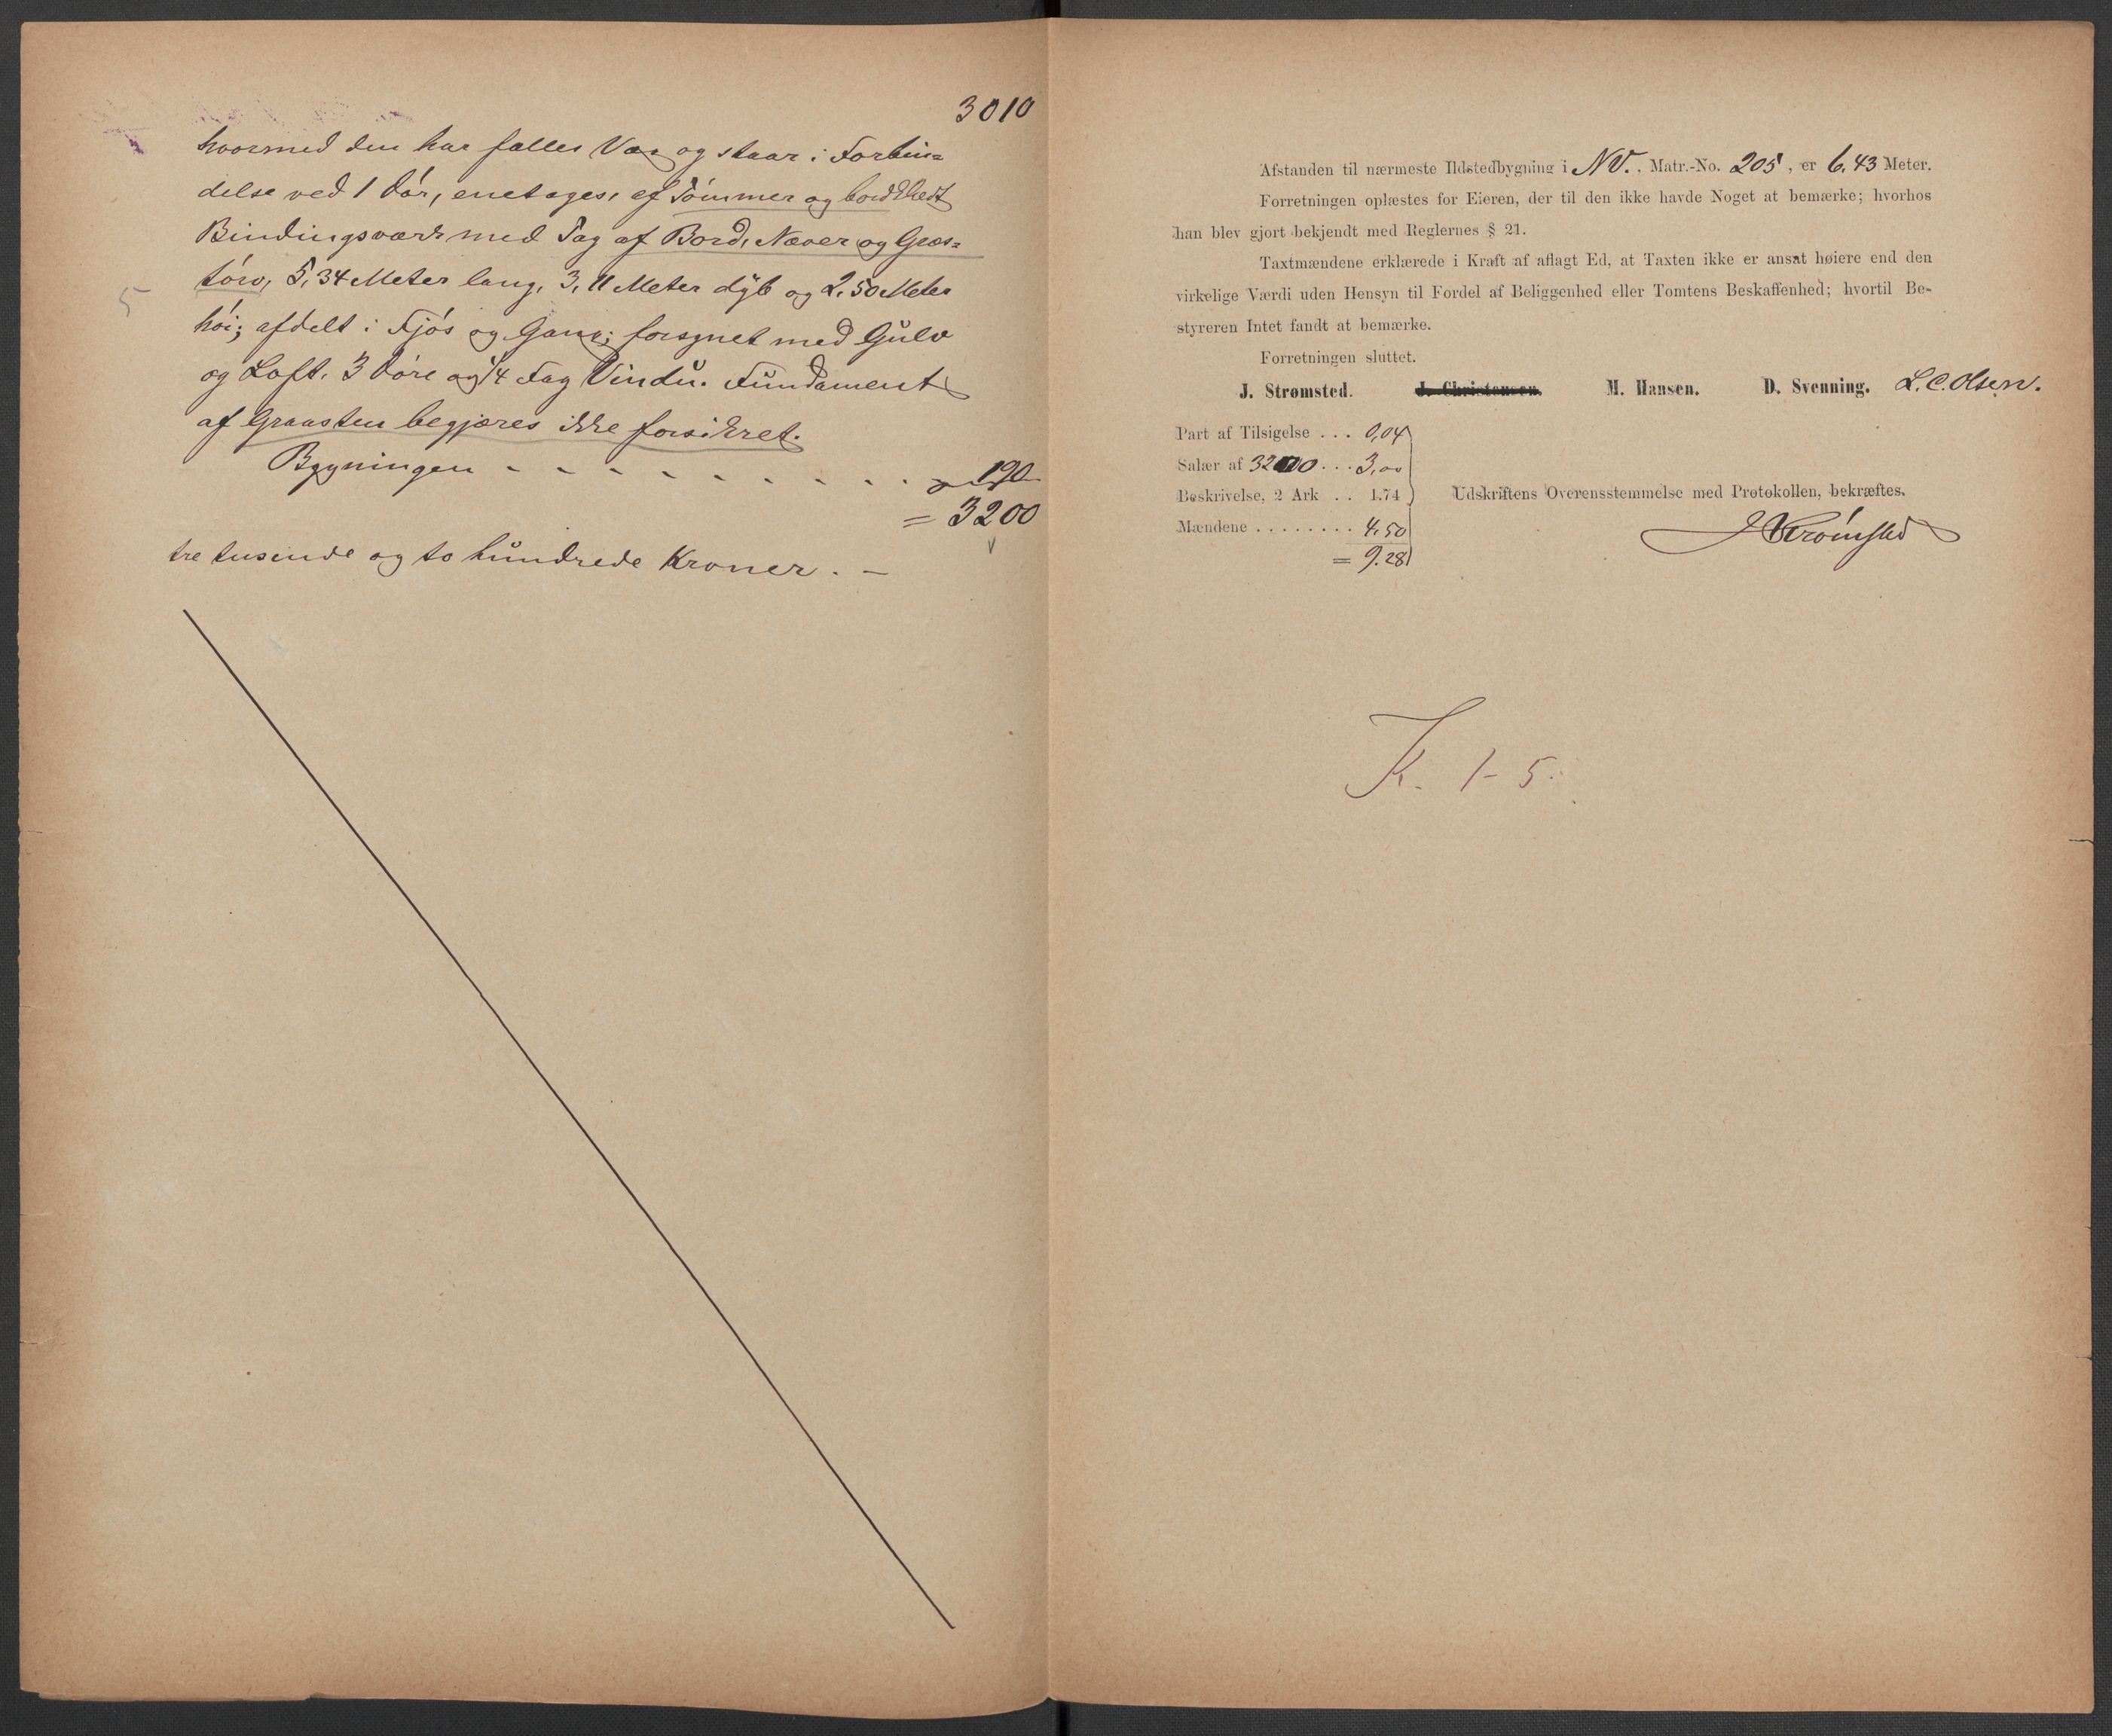 3010
hvormed den har fælles Væg og staar i Forbin=
delse ved 1 Dör, enetages, af Tömmer og bordklædt
Bindingsværk med Tag af Bord, Næver og Græs=
törv, 5,34 Meter lang, 3,11 Meter dyb og 2,50 Meter
5
höi; afdelt i Fjös og Gang; forsynet med Gulv
og Loft. 3 Döre og 1/4 Fag Vindu. Fundament
af Graasten begjæres ikke forsikret.
Bygningen - - - - - - - - - 190
= 3200
tre tusinde og to hundrede Kroner. —
Afstanden til nærmeste Ildstedbygning i NV., Matr.-No. 205, er 6,43 Meter.
Forretningen oplæstes for Eieren, der til den ikke havde Noget at bemærke; hvorhos
han blev gjort bekjendt med Reglernes § 21.
Taxtmændene erklærede i Kraft af aflagt Ed, at Taxten ikke er ansat høiere end den
virkelige Værdi uden Hensyn til Fordel af Beliggenhed eller Tomtens Beskaffenhed; hvortil Be-
styreren Intet fandt at bemærke.
Forretningen sluttet.
J. Strømsted. J. Christensen. M. Hansen. D. Svenning. L. C. Olsen.
Part af Tilsigelse . . . 0,04
Salær af 3200 . . . 3,00
Beskrivelse, 2 Ark . . 1.74
Udskriftens Overensstemmelse med Protokollen, bekræftes.
Mændene . . . . . . . . 4,50
JStrömsted
= 9.28
K. 1-5.